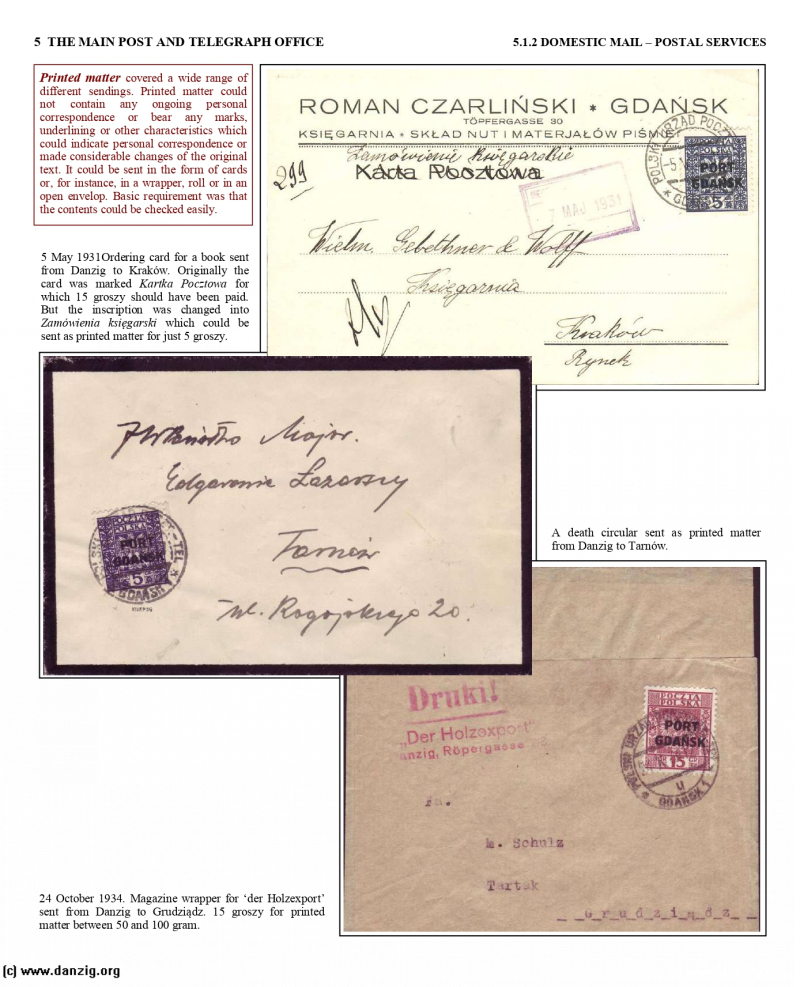 5 THE MAIN POST AND TELEGRAPH OFFICE
5.1.2 DOMESTIC MAIL – POSTAL SERVICES
Printed matter covered a wide range of
different sendings. Printed matter could
not contain any ongoing personal
correspondence or bear any marks,
underlining or other characteristics which
could indicate personal correspondence or
made considerable changes of the original
text. It could be sent in the form of cards
or, for instance, in a wrapper, roll or in an
open envelop. Basic requirement was that
the contents could be checked easily.
ROMAN CZARLIŃSKI * GDAŃSK
TÖPFERGASSE 30
KSIĘGARNIA * SKŁAD NUT I MATERJAŁÓW PIŚMIE
Zamówienie Księgarskie
Karta Pocztowa
299
POCZTA
POLSKA
PORT
GDAŃSK
5
7 MAJ 1931
Wielm. Gebethner & Wolff
Księgarnia
Kraków
Rynek
5 May 1931Ordering card for a book sent
from Danzig to Kraków. Originally the
card was marked Kartka Pocztowa for
which 15 groszy should have been paid.
But the inscription was changed into
Zamówienia księgarski which could be
sent as printed matter for just 5 groszy.
Major.
Tarnów
ul. 20.
POCZTA
POLSKA
PORT
GDAŃSK
5
GDAŃSK
A death circular sent as printed matter
from Danzig to Tarnów.
Druki!
„Der Holzexport"
anzig, Röpergasse
POCZTA
POLSKA
PORT
GDAŃSK
15
GDAŃSK 1
Fa.
M. Schulz
Tartak
Grudziądz
24 October 1934. Magazine wrapper for ‘der Holzexport’
sent from Danzig to Grudziądz. 15 groszy for printed
matter between 50 and 100 gram.
(c) www.danzig.org